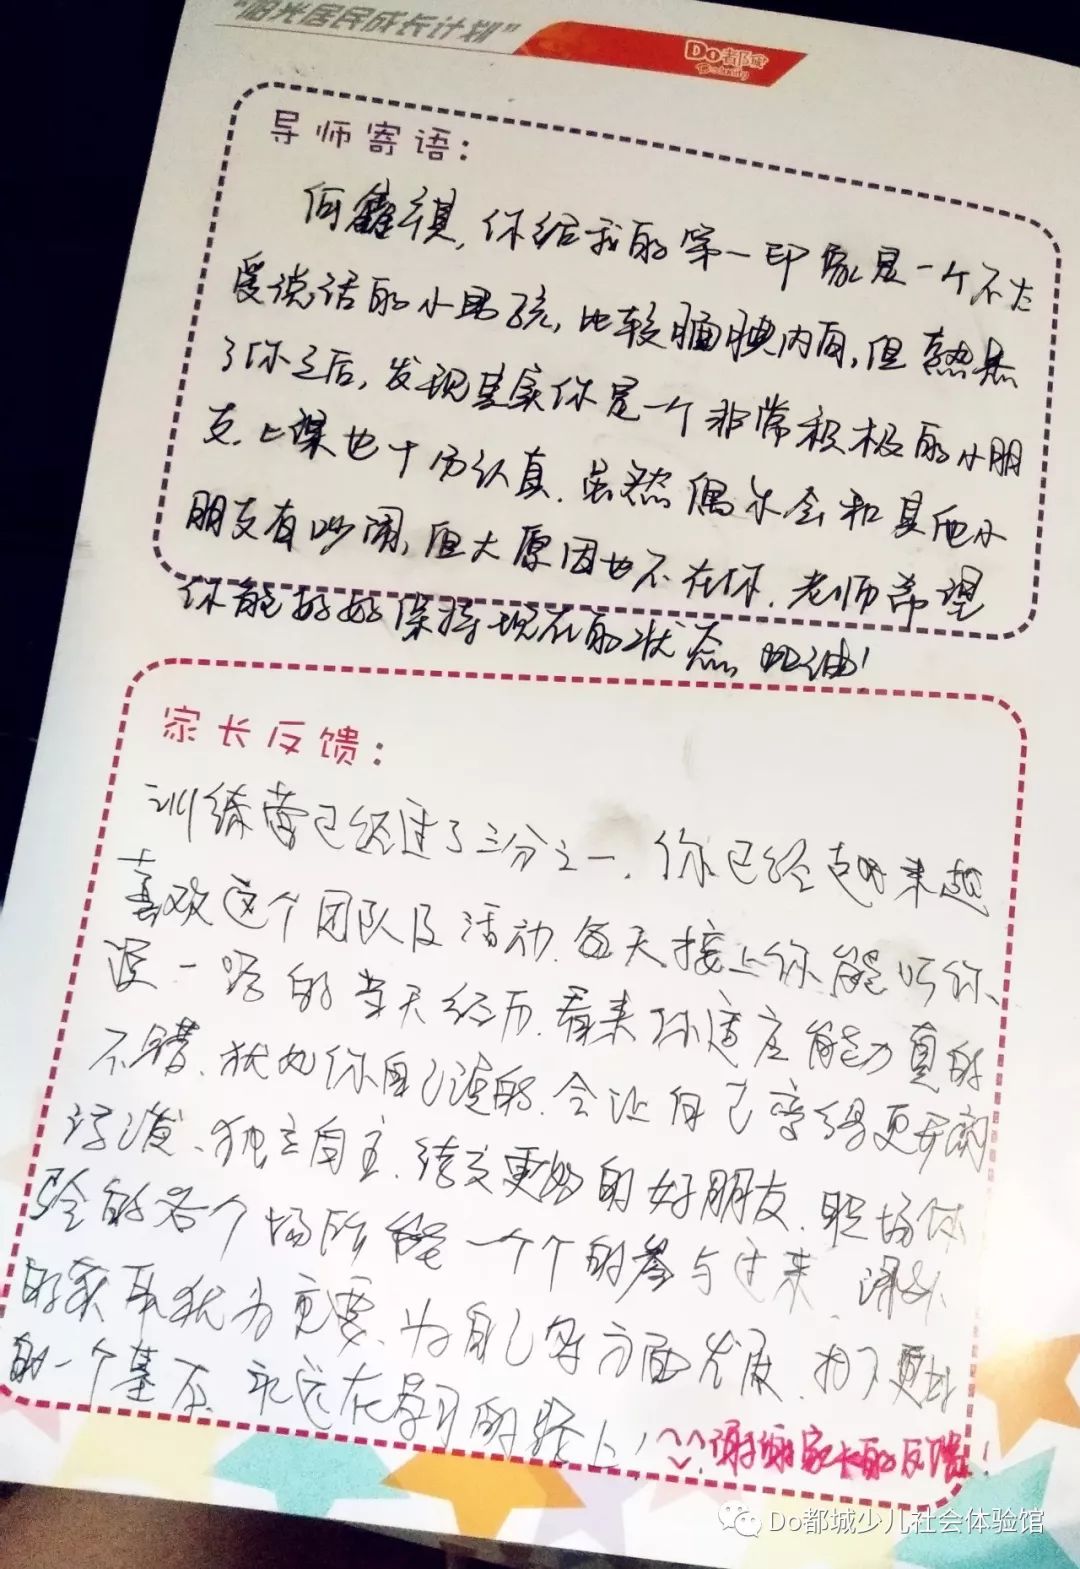 “阳光居民成长计划”
Do都城
导师寄语：
何鑫祺，你给我的第一印象是一个不太
爱说话的小男孩，比较腼腆内向，但熟悉
了你之后，发现其实你是一个非常积极的小朋
友.上课也十分认真.虽然偶尔会和其他小
朋友有吵闹，但大原因也不在你.老师希望
你能好好保持现在的状态。加油！
家长反馈：
训练营已经过了三分之一.你已经越来越
喜欢这个团队及活动.每天接上你能听你、
一路的当天经历.看来你适应能力真的
不错.就如你自己说的.会让自己变得更开朗
活泼、独立自主.结交更好的好朋友.职场体
验的各个场所能一个个的参与过来.课外
的获取犹为重要、为自己各方面发展.打下更好
的一个基石.永远在学习的路上！
^_^ 谢谢家长的反馈！
Do都城少儿社会体验馆